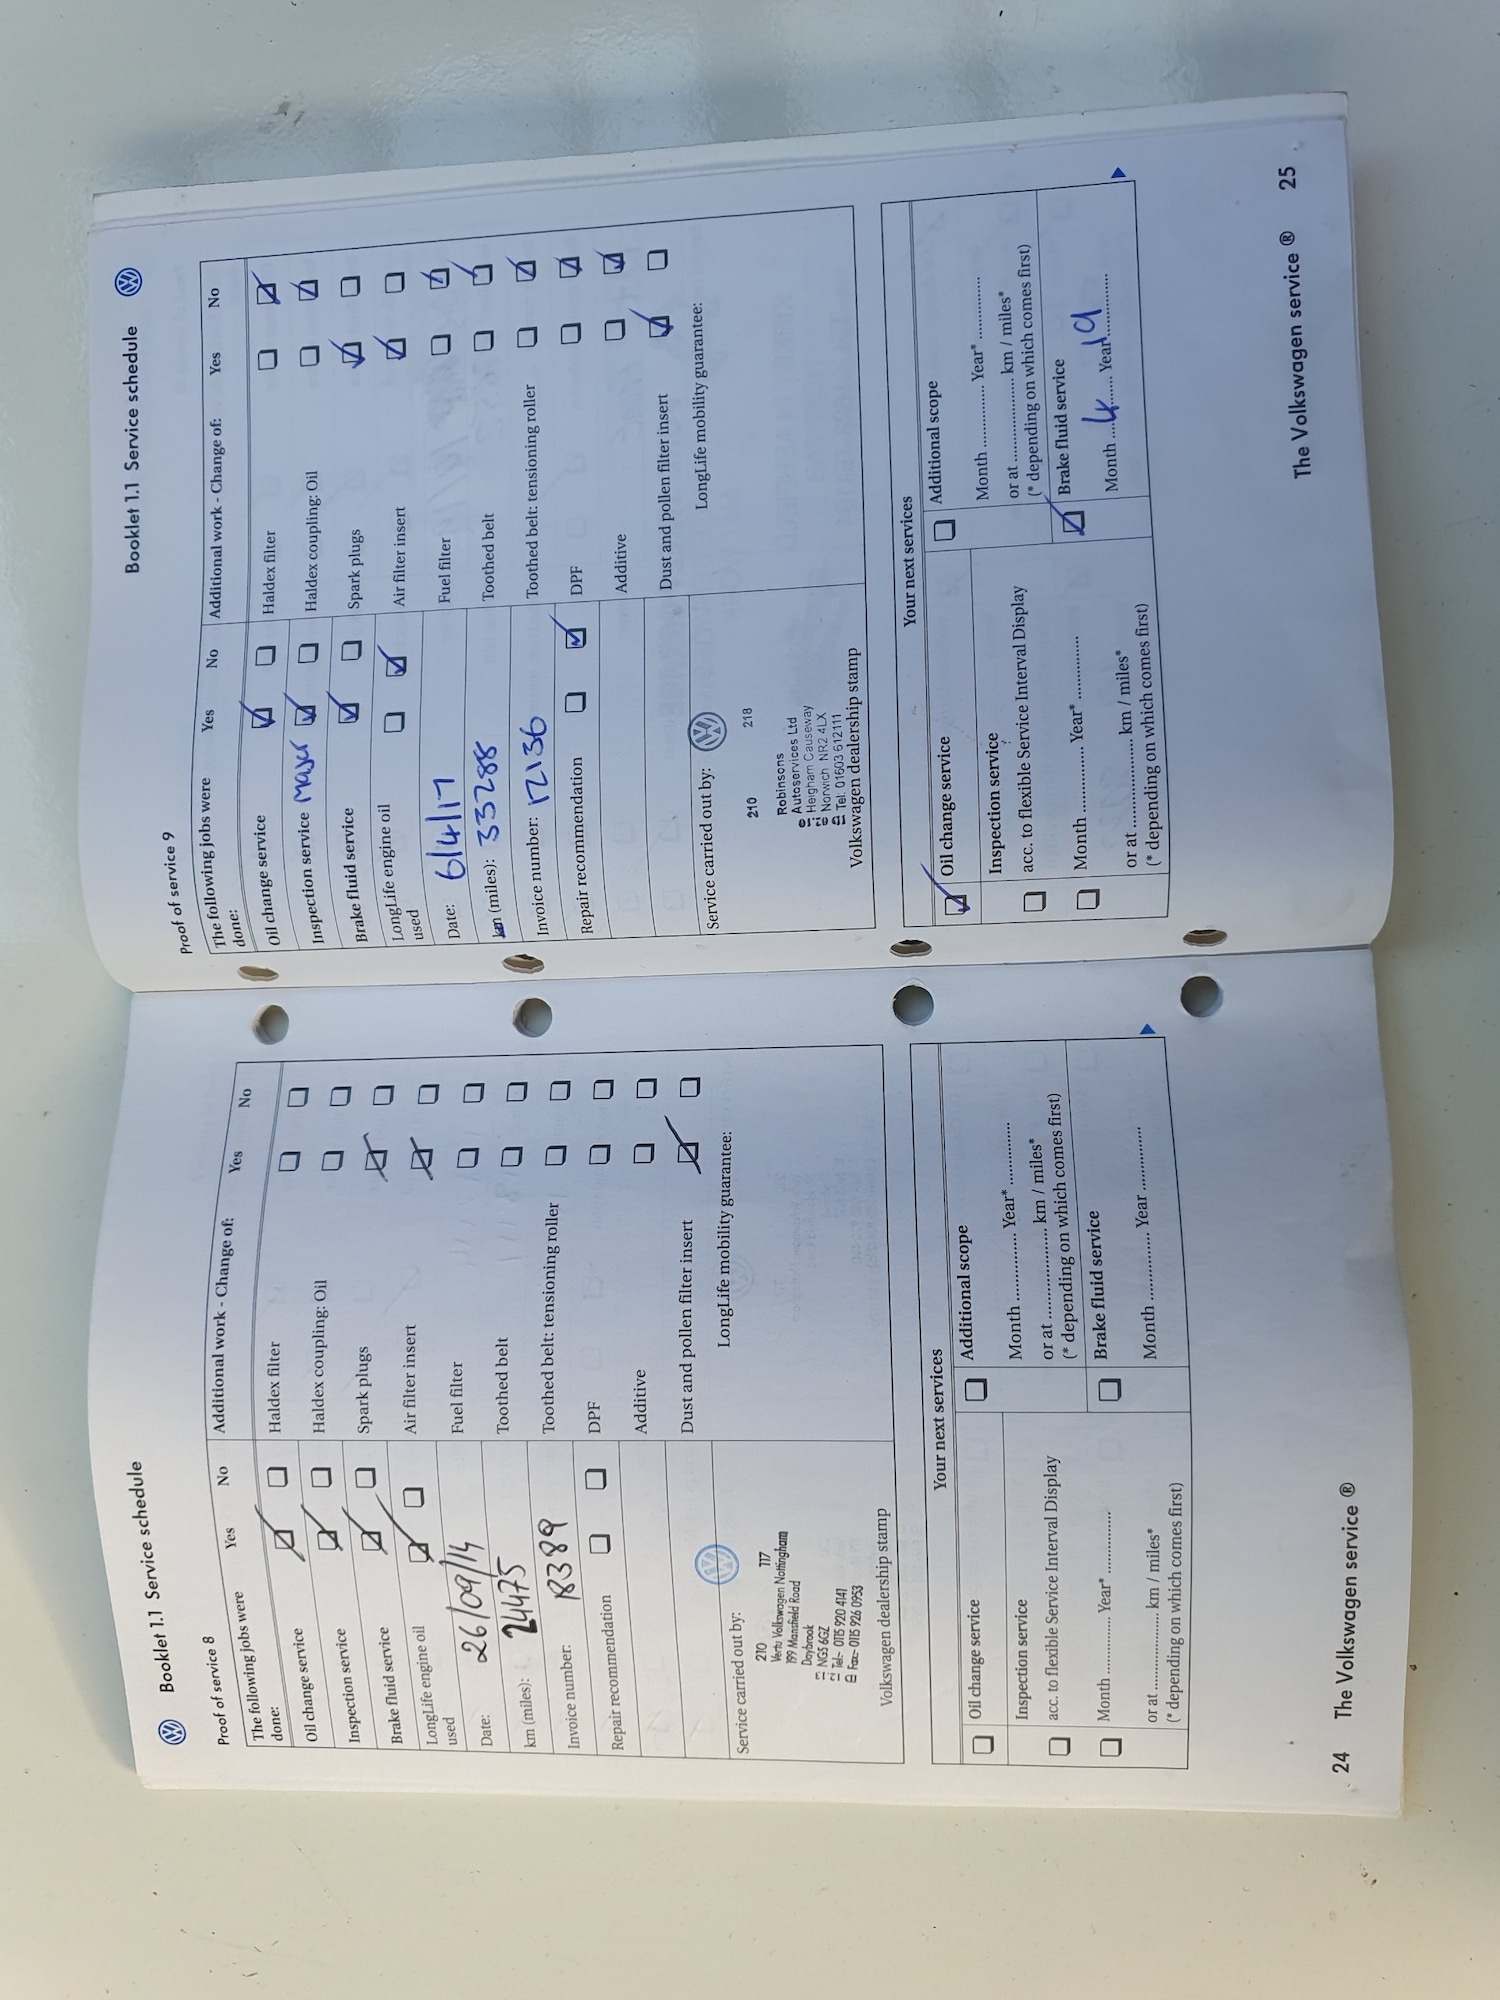 Booklet 1.1 Service schedule
Proof of service 8
The following jobs were done: Yes No
Additional work - Change of: Yes No
Oil change service
Haldex filter
Inspection service
Haldex coupling: Oil
Brake fluid service
Spark plugs
LongLife engine oil used
Air filter insert
Date: 26/09/14
Fuel filter
km (miles): 24475
Toothed belt
Invoice number: 18389
Toothed belt: tensioning roller
Repair recommendation
DPF
Additive
Dust and pollen filter insert
Service carried out by:
LongLife mobility guarantee:
210 117
Vertu Volkswagen Nottingham
199 Mansfield Road
Daybrook
NG5 6GZ
Tel- 0115 920 4141
Fax- 0115 926 0953
Volkswagen dealership stamp
Your next services
Oil change service
Additional scope
Inspection service
acc. to flexible Service Interval Display
Month ............. Year* .............
or at .................. km / miles*
(* depending on which comes first)
Month ............. Year* .............
or at .................. km / miles*
(* depending on which comes first)
Brake fluid service
Month ............. Year .............
24 The Volkswagen service ®
Booklet 1.1 Service schedule
Proof of service 9
The following jobs were done: Yes No
Additional work - Change of: Yes No
Oil change service
Haldex filter
Inspection service major
Haldex coupling: Oil
Brake fluid service
Spark plugs
LongLife engine oil used
Air filter insert
Date: 6/4/17
Fuel filter
km (miles): 33288
Toothed belt
Invoice number: 12136
Toothed belt: tensioning roller
Repair recommendation
DPF
Additive
Dust and pollen filter insert
Service carried out by:
LongLife mobility guarantee:
210 218
Robinsons
Autoservices Ltd
Heigham Causeway
Norwich NR2 4LX
Tel: 01603 612111
Volkswagen dealership stamp
Your next services
Oil change service
Additional scope
Inspection service
acc. to flexible Service Interval Display
Month ............. Year* .............
or at .................. km / miles*
(* depending on which comes first)
Month ............. Year* .............
or at .................. km / miles*
(* depending on which comes first)
Brake fluid service
Month 4 Year 19
The Volkswagen service ® 25